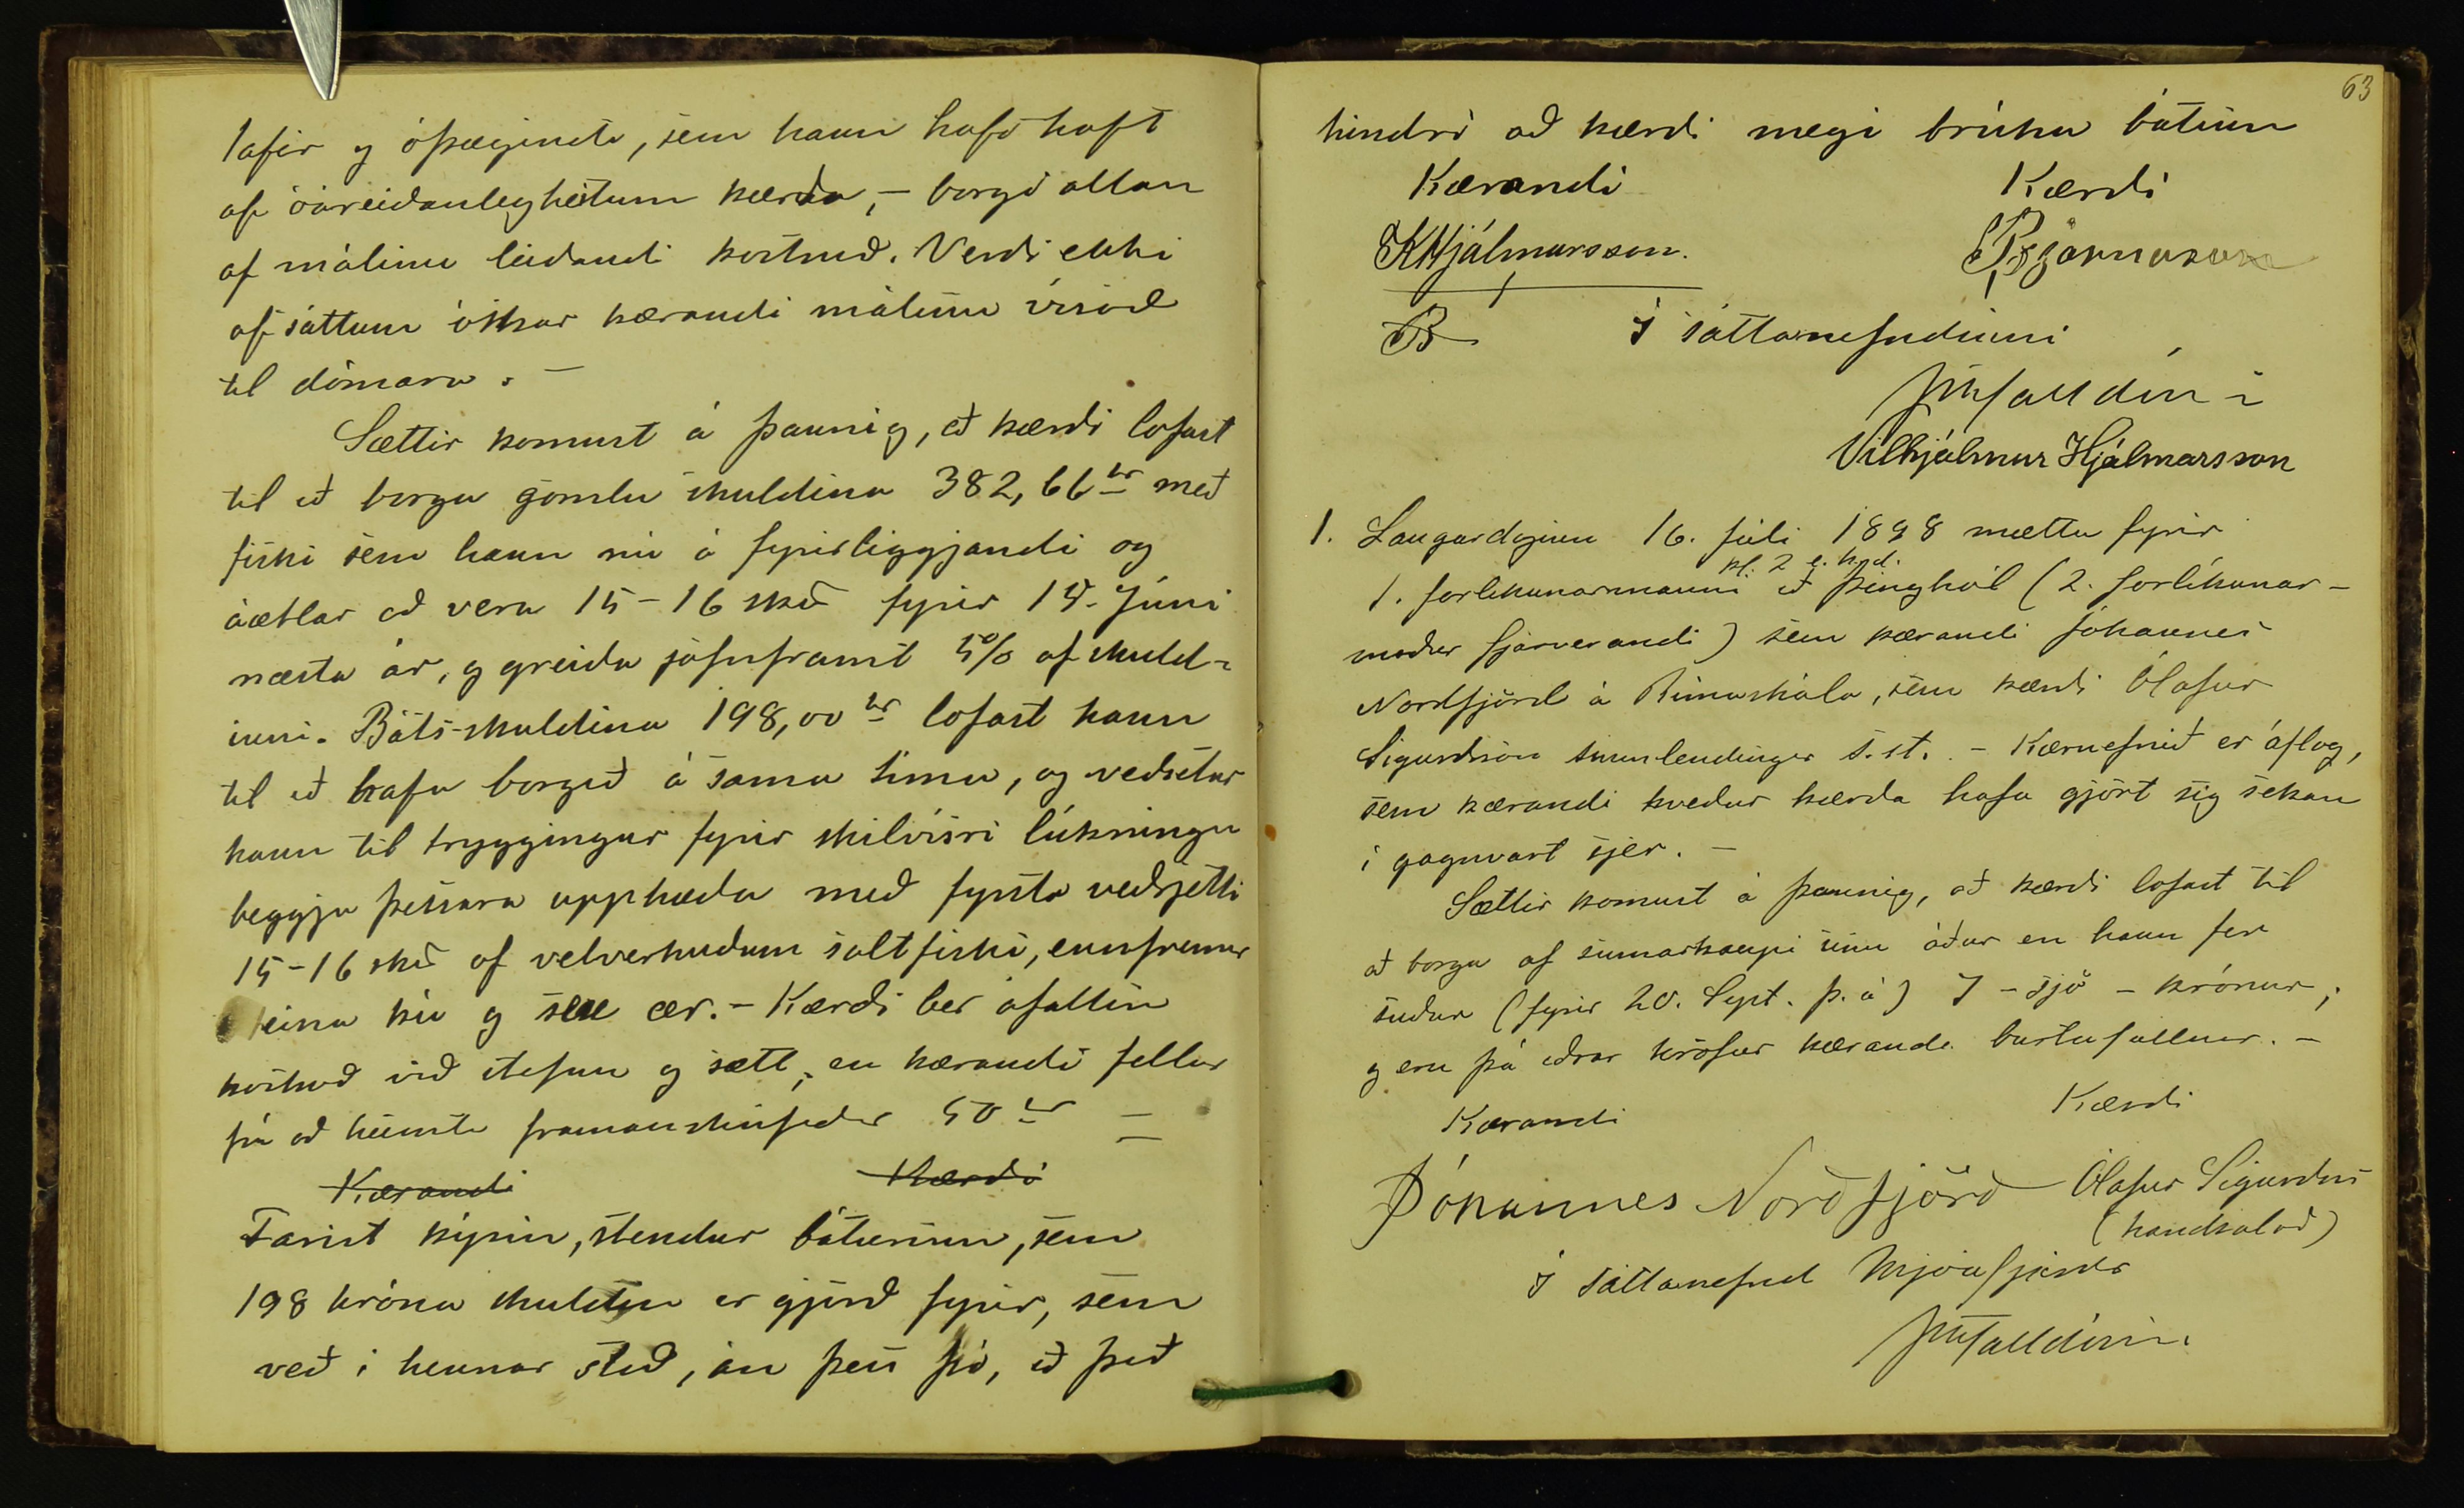 tafir og óþægindi, sem hann hafi haft
af óáreiðanlegheitum kærða, – borgi allan
af málinu leiðandi kostnað. Verði ekki
af sáttum óskar kærandi málinu vísað
til dómara. –
Sættir komust á þannig, að kærði lofast
til að borga gömlu skuldina 382,66 kr með
fiski sem hann nú á fyrirliggjandi og
áætlar að vera 15–16 skd fyrir 14. Júni
næsta ár, og greiða jafnframt 5% af skuld-
inni. Báts-skuldina 198,00 kr lofast hann
til að hafa borgað á sama tíma, og veðsetur
hann til tryggingar fyrir skilvísri lúkningu
beggja þessara upphæða með fyrsta veðrjetti
15–16 skd af velverkuðum saltfiski, ennfremur
eina kú og sex ær. – Kærði ber áfallin
kostnað við stefnu og sætt, en kærandi fellur
frá að heimta framanskrifaðar 50 kr –
Kærandi Kærði
Farist kýrin, stendur báturinn, sem
198 króna skuldin er gjörð fyrir, sem
veð i hennar stað, án þess þó, að það
63
hindri að kærdi megi brúka bátinn
Kærandi Kærdi
KHjálmarsson. Bjarnason
B Í sáttanefndinni
Vilhjálmur Hjálmarsson
1. Laugardaginn 16. júli 1898 mættu fyrir
kl. 2 e. hád.
1. forlikunarmanni að Þinghól (2. forlikunar-
maður fjærverandi) sem kærandi Jóhannes
Nordfjörd á Rimaskála, sem kærdi Ólafur
Sigurdsson sunnlendingur s.st. – Kæruefnið er áflog,
sem kærandi kveður kærda hafa gjört sig sekan
i gagnvart sjer. –
Sættir komust á þannig, að kærdi lofast til
að borga af sumarkaupi sinu áður en hann fer
suður (fyrir 20. Sept. þ. á) 7 – sjö – krónur,
og eru þá aðrar kröfur kæranda burtu fallnar. –
Kærandi Kærdi
Jóhannes Norðfjörð Ólafur Sigurdss
(handsalað)
Í sáttanefnd Mjóafjarðar